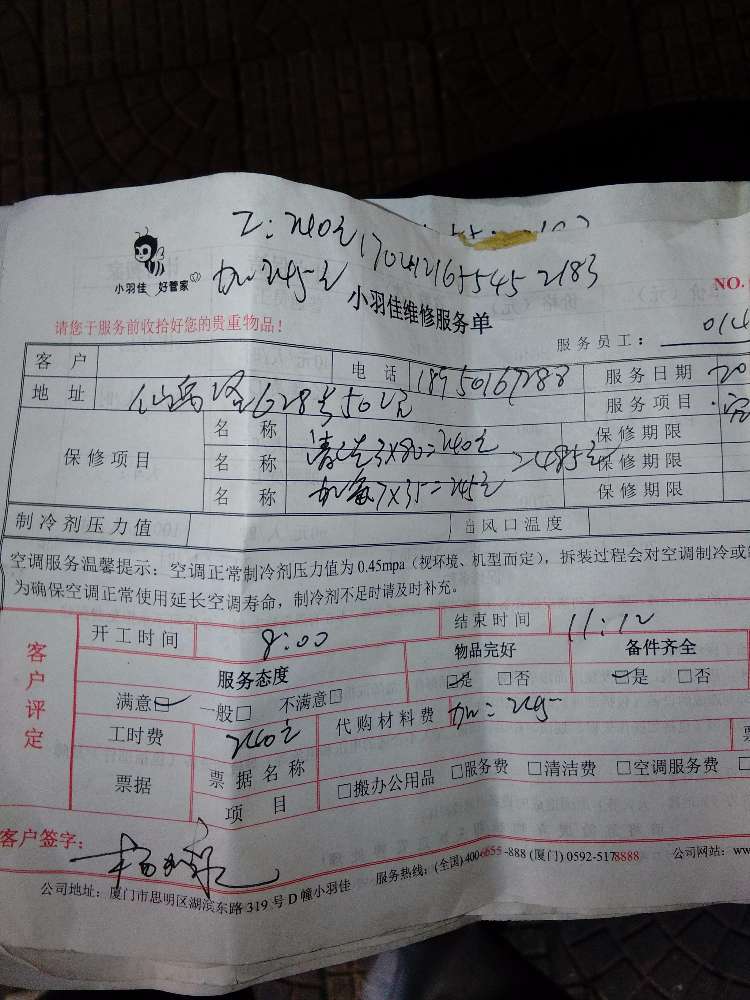 工:240元 170412165545 2183
加:245元
小羽佳 好管家
小羽佳维修服务单
NO.
请您于服务前收拾好您的贵重物品！
服务员工：
客户
电话 18950169288
服务日期 20
地址 仙岳路628号50
服务项目
保修项目
名称 清洗3X80=240元
保修期限
名称 2485元
保修期限
名称 加氟7X35=245元
保修期限
制冷剂压力值
出风口温度
空调服务温馨提示：空调正常制冷剂压力值为0.45mpa（视环境、机型而定），拆装过程会对空调制冷或
为确保空调正常使用延长空调寿命，制冷剂不足时请及时补充。
客户评定
开工时间 8:00
结束时间 11:12
服务态度
物品完好
备件齐全
满意□ 一般□ 不满意□
□是 □否
□是 □否
工时费 240元
代购材料费 加:245
票据
票据名称
项目
□搬办公用品 □服务费 □清洁费 □空调服务费
客户签字：
公司地址：厦门市思明区湖滨东路319号D幢小羽佳
服务热线：(全国)400-6655-888 (厦门) 0592-5178888
公司网站：ww